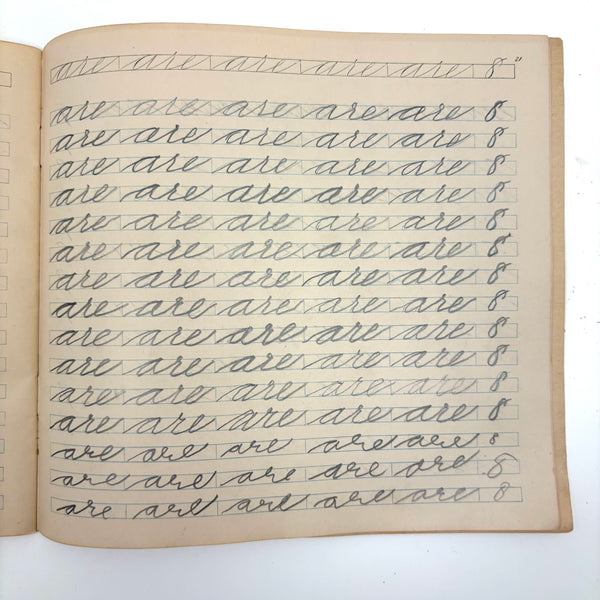 are are are are are 8 21
are are are are are 8
are are are are are 8
are are are are are 8
are are are are are 8
are are are are are 8
are are are are are 8
are are are are are 8
are are are are are 8
are are are are are 8
are are are are are 8
are are are are are 8
are are are are are 8
are are are are are 8
are are are are are 8
are are are are are 8